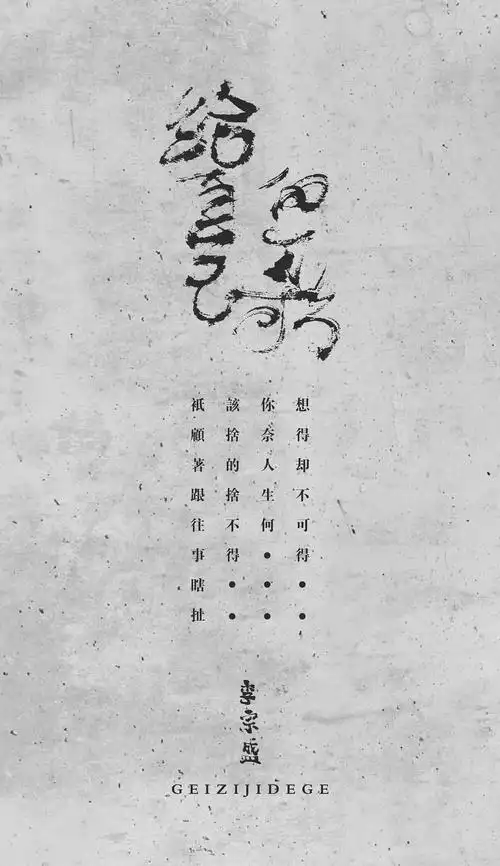 給自己
的歌
想得却不可得●●
你奈人生何●●●
該捨的捨不得●●
祇顧著跟往事瞎扯
李宗盛
GEIZIJIDEGE